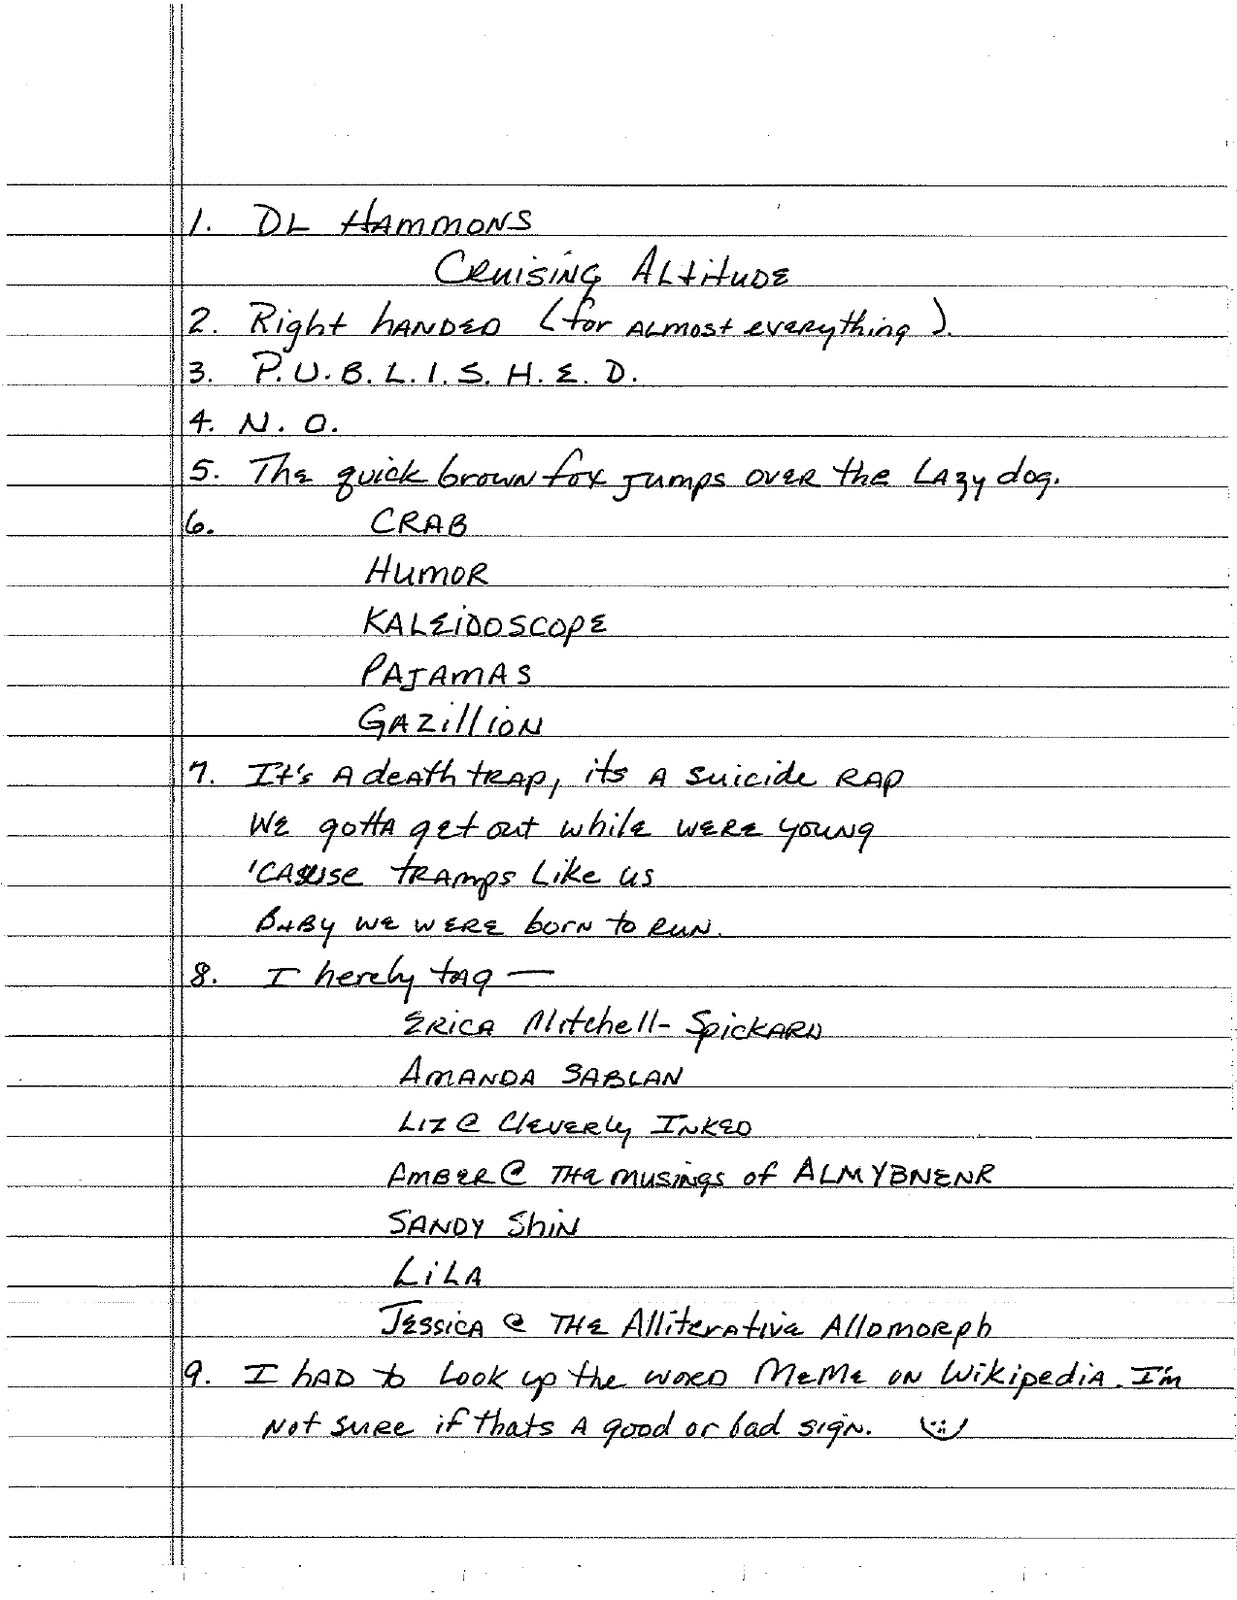 1. DL HAMMONS
Cruising Altitude
2. Right handed (for almost everything).
3. P.U.B.L.I.S.H.E.D.
4. N.O.
5. The quick brown fox jumps over the lazy dog.
6. CRAB
HUMOR
KALEIDOSCOPE
PAJAMAS
GAZILLION
7. It's a death trap, its a suicide rap
We gotta get out while were young
'Cause tramps like us
Baby we were born to run.
8. I hereby tag —
Erica Mitchell-Spickard
Amanda Sablan
Liz @ Cleverly Inked
Amber @ The musings of ALMYBNENR
Sandy Shin
Lila
Jessica @ The Alliterative Allomorph
9. I had to look up the word MeMe on Wikipedia. I'm
not sure if thats a good or bad sign.